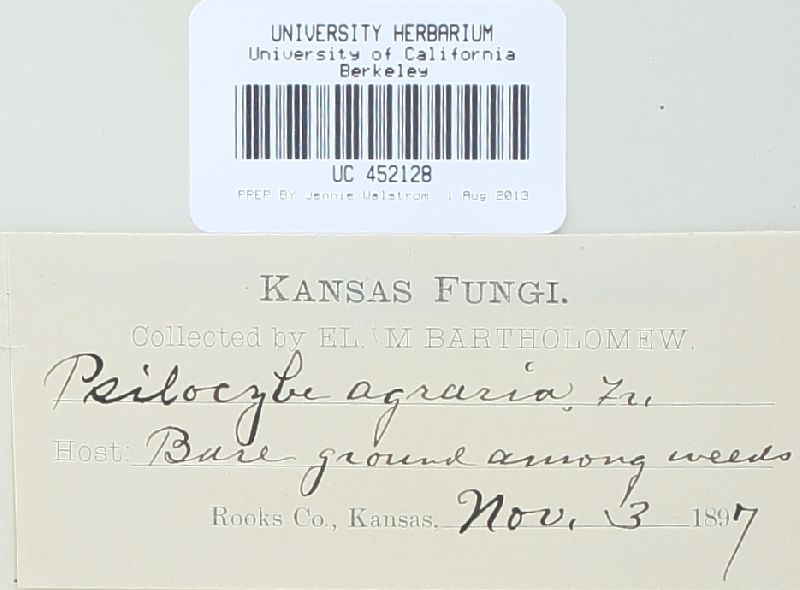 UNIVERSITY HERBARIUM
University of California
Berkeley
UC 452128
PREP BY Jennie Walstrom, 1 Aug 2013
KANSAS FUNGI.
Collected by EL. M BARTHOLOMEW.
Psilocybe agraria, Fr.
Host: Bare ground among weeds
Rooks Co., Kansas, Nov. 3 1897